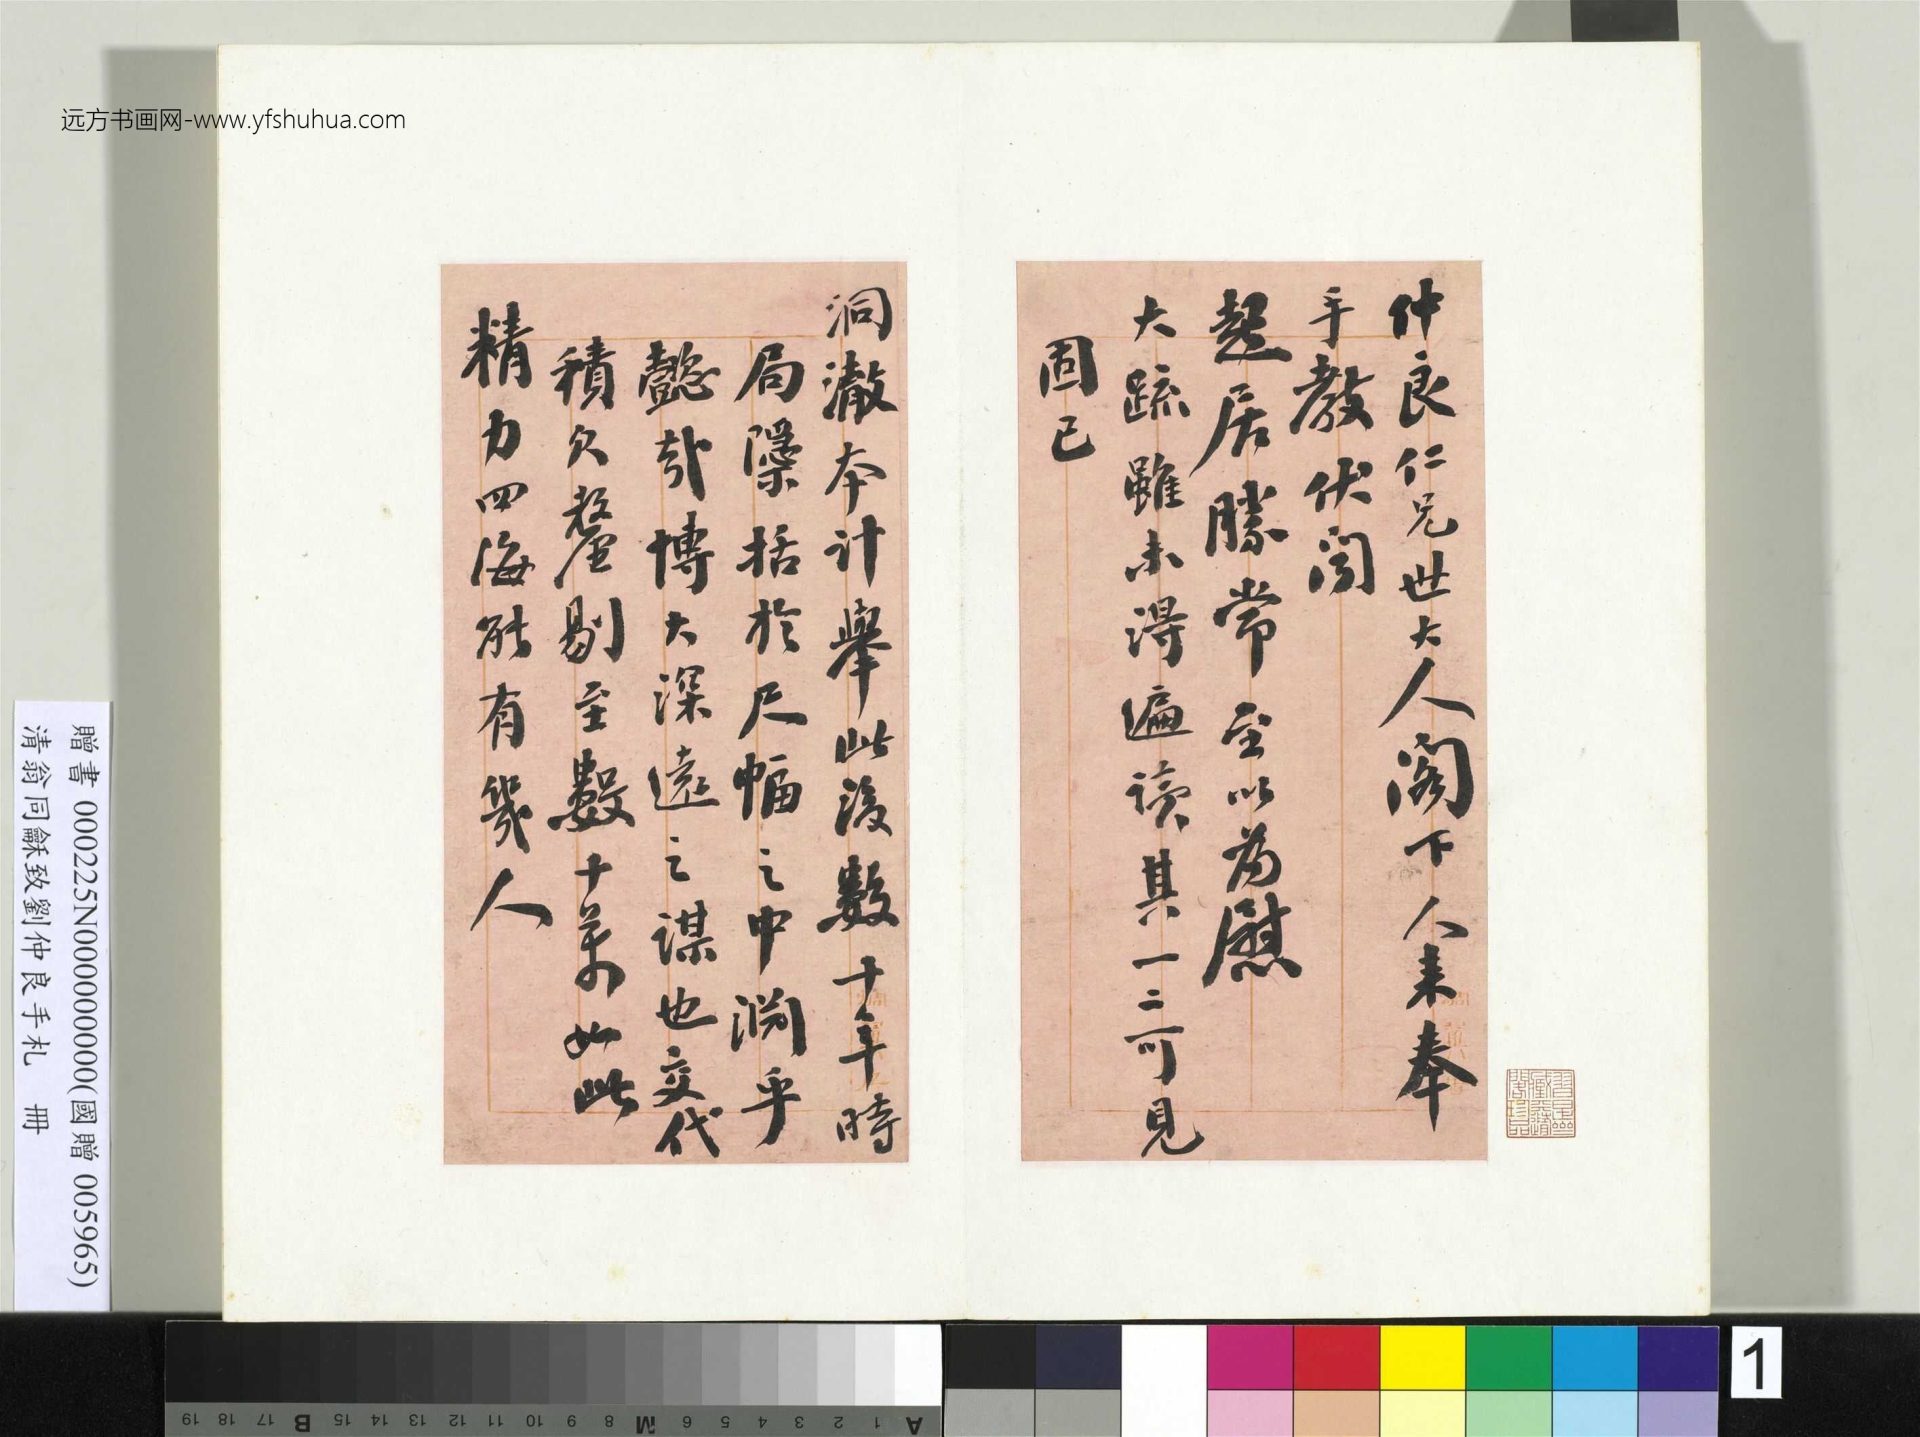 远方书画网-www.yfshuhua.com
仲良仁兄世大人閣下人来奉
手教伏聞
起居勝常至以為慰
大疏雖未得遍讀其一二可見
固已
洞澈本計舉此後數十年時
局檃括於尺幅之中淵乎
懿哉博大深遠之謀也交代
積欠釐剔至數十萬如此
精力四海能有幾人
贈書 000225N000000000(國贈 005965)
清翁同龢致劉仲良手札 冊
1
A 1 2 3 4 5 6 M 8 9 10 11 12 13 14 15 B 17 18 19